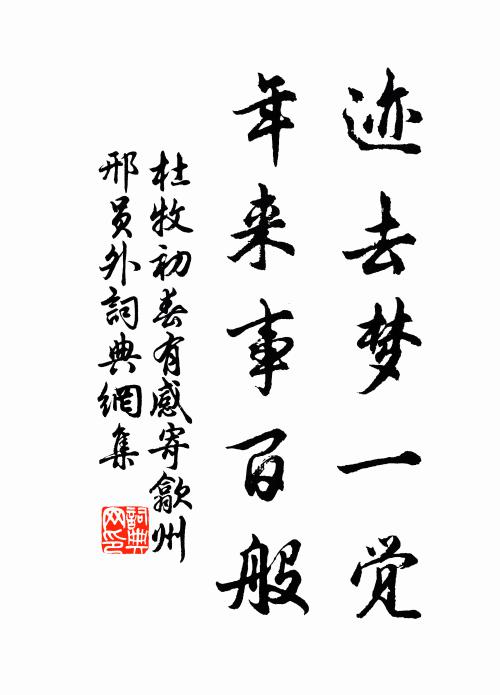 迹去梦一觉
年来事百般
杜牧初春有感寄歙州
邢员外詞典網集
詞典
网印